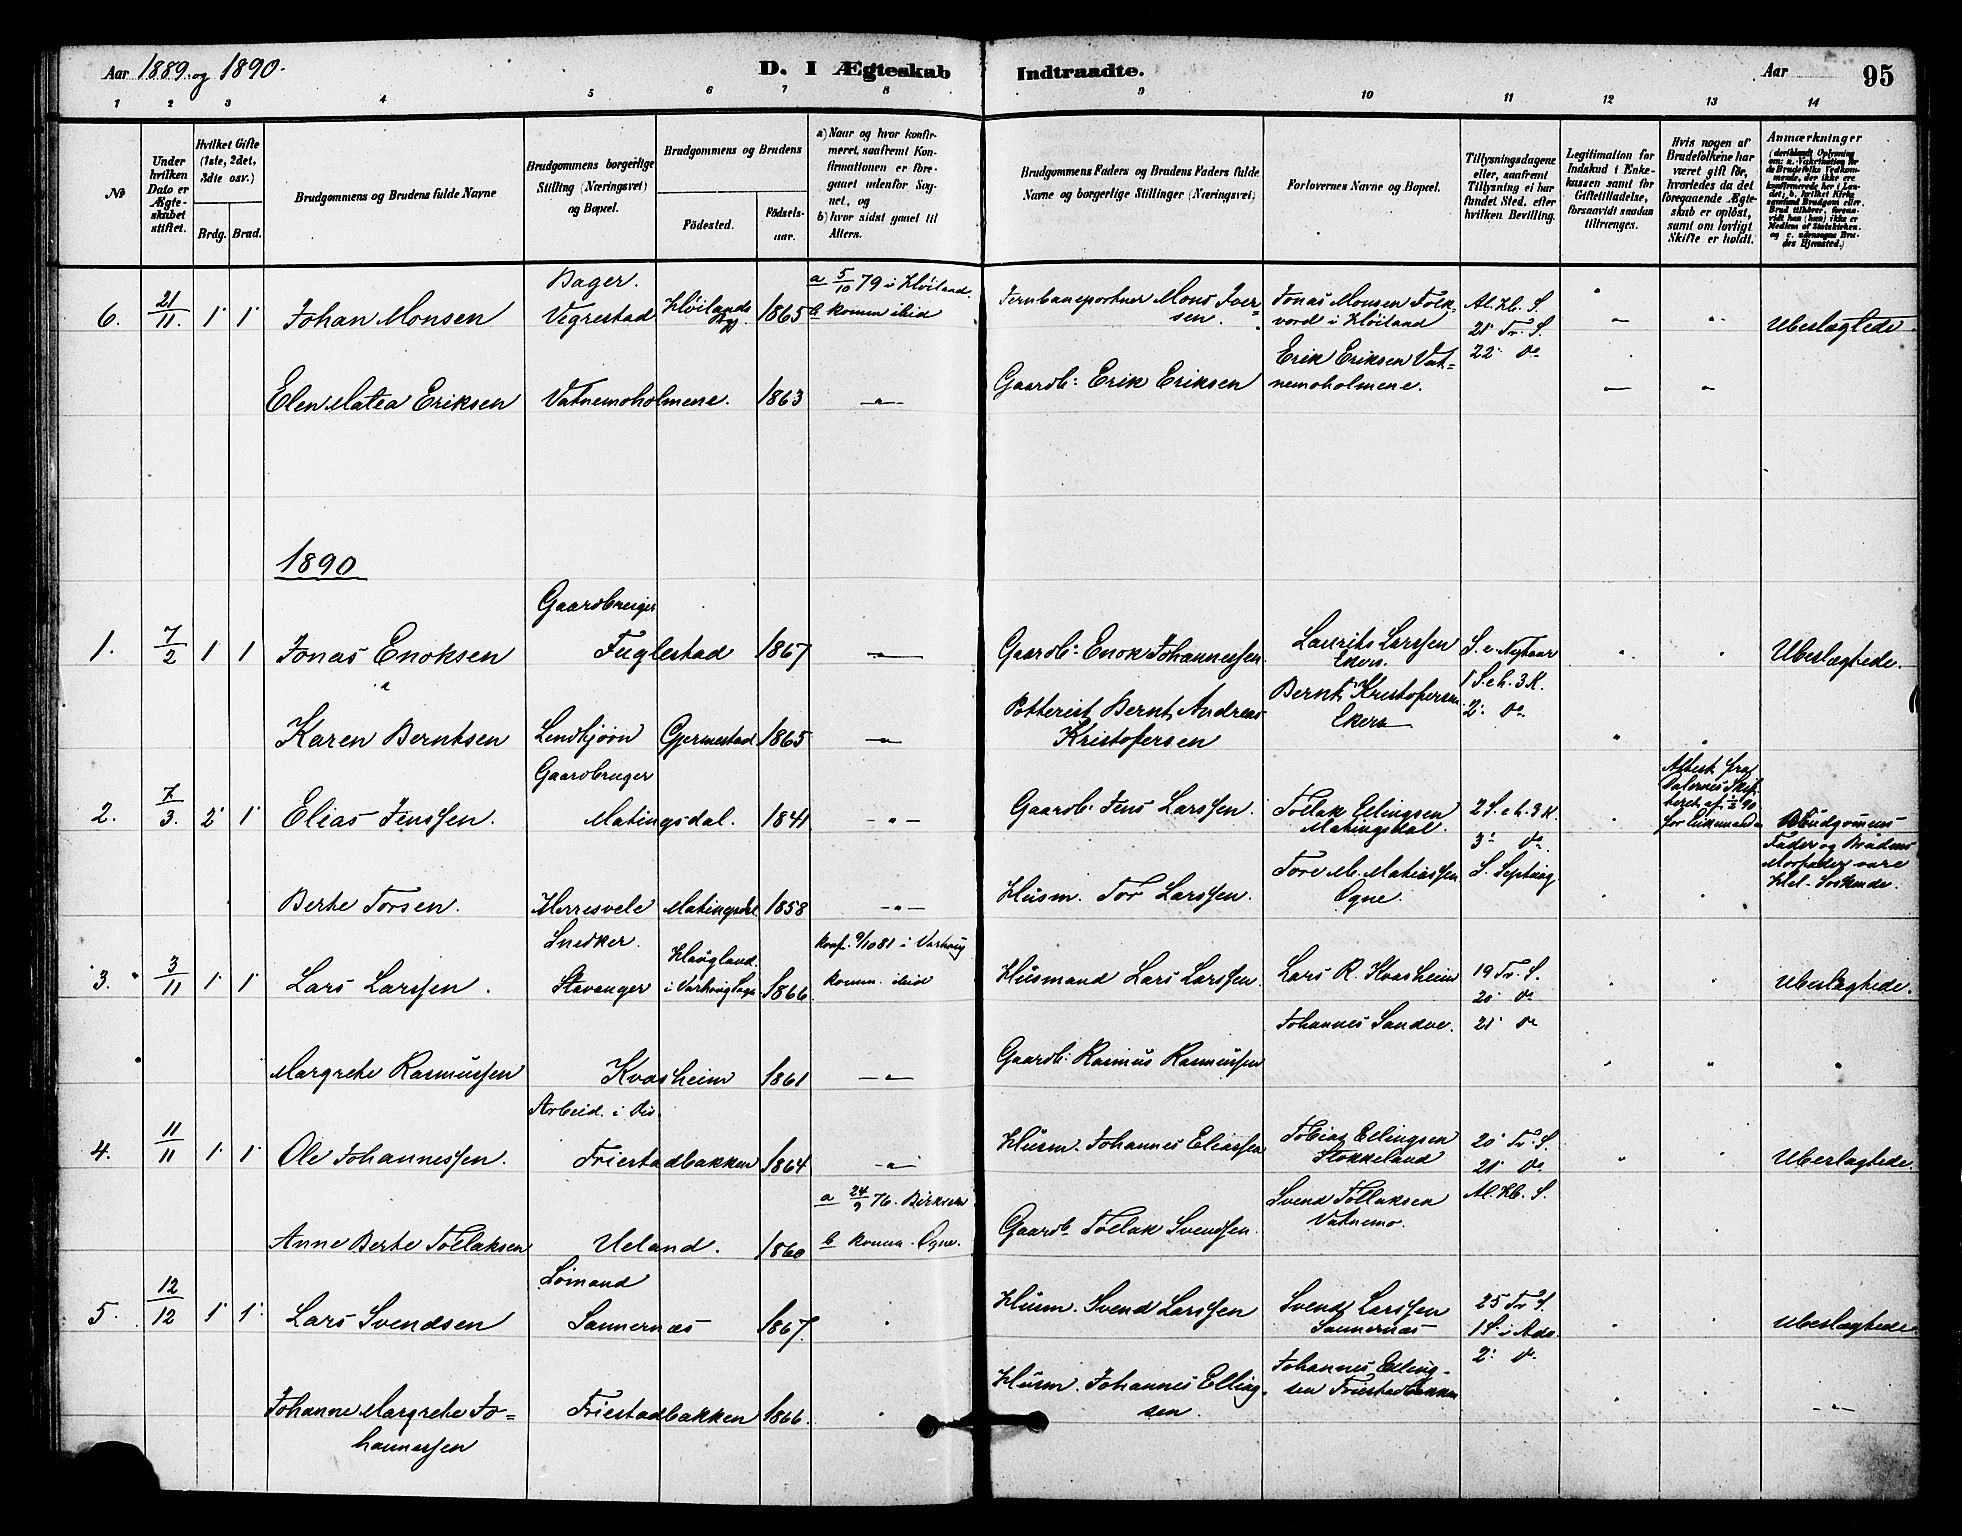 Aar 1889 og 1890.
D. I Ægteskab Indtraadte.
Aar 95
1 2 3 4 5 6 7 8 9 10 11 12 13 14
No
Under hvilken Dato er Ægteskabet stiftet.
Hvilket Gifte (1ste, 2det, 3die osv.)
Brdg. Brud.
Brudgommens og Brudens fulde Navne
Brudgommens borgerlige Stilling (Næringsvei) og Bopæl.
Brudgommens og Brudens
Födested.
Födsels-aar.
a) Naar og hvor konfirmeret, saafremt Konfirmationen er foregaaet udenfor Sognet, og
b) hvor sidst gaaet til Alters.
Brudgommens Faders og Brudens Faders fulde Navne og borgerlige Stillinger (Næringsvei)
Forlovernes Navne og Bopæl.
Tillysningsdagene eller, saafremt Tillysning ei har fundet Sted, efter hvilken Bevilling.
Legitimation for Indskud i Enkekassen samt for Giftetilladelse, forsaavidt saadan tiltrænges.
Hvis nogen af Brudefolkene har været gift för, hvorledes da det foregaaende Ægteskab er oplöst, samt om lovligt Skifte er holdt.
Anmærkninger
6. 21/11. 1 1 Johan Monsen Bager. Vegrestad 1865 a 5/10 79 i Høiland. b komm ibid Jernbaneportner Mons Iversen. Jonas Monsen Folkvord i Høiland Al. Hl. S. 21 Tr. S. 22 do Ubeslægtede.
Elen Matea Eriksen Vatnemoholmene. 1863 —"— Gaardb: Erik Eriksen Erik Eriksen Vatnemoholmene. —"— —"—
1890
1. 7/2 1 1 Jonas Enoksen Gaardbruger Fuglestad 1867 —"— Gaardb: Enok Johannessen Laurits Larssen S. e. Nytaar 1 S. e. h. 3 K. 2. do Ubeslægtede.
Karen Berntsen Gjermestad 1865 —"— Bernt Andreas Kristofersen Bernt Kristofersen
2. 7/3. 2 1 Elias Jenssen. Gaardbruger Matingsdal. 1841 —"— Gaardb. Jens Larssen. Tollak Ellingsen Matingsdal. 2 S. e. h. 3 K. 3. do. S. Septuag Attest fra Dalernes Brudgomens Fader og Brudens Morfader vare Hel-Søskende.
Berte Torsen. Herresvele Matingsdal 1858 —"— Husm. Tor Larssen. Tore M. Matiassen Ogne.
3. 3/11 1 1 Lars Larssen. Snedker. Stavanger 1866 konf. 9/10 81 i Varhoug komm. ibid Husmand Lars Larssen. Lars R. Kvasheim 19 Tr. S. 20 do 21 do Ubeslægtede.
Margrete Rasmussen Kvasheim 1861 —"— Gaardb: Rasmus Rasmussen Johannes Sandve.
4. 11/11 1 1 Ole Johannessen. Friestadbakken 1864 —"— Husm. Johannes Eliassen Tobias Ellingsen Stokkeland 20 Tr. S. 21 do Al. Hl. S. Ubeslægtede.
Anne Berte Tollaksen Ueland. 1860 a 24/9 76. b komm. Ogne. Gaardb Tollak Svendsen. Svend Tollaksen Vatnemo.
5. 12/12 1 1 Lars Svendsen Sömand Sannernæs 1867 Husm. Svend Larssen Svend Larssen Sannernæs 25 Tr. S. 1 S. i Adv. 2. do Ubeslægtede.
Johanne Margrete Johannessen Friestadbakken 1866 Husm. Johannes Ellingsen. Johannes Ellingsen Friestadbakken —"—